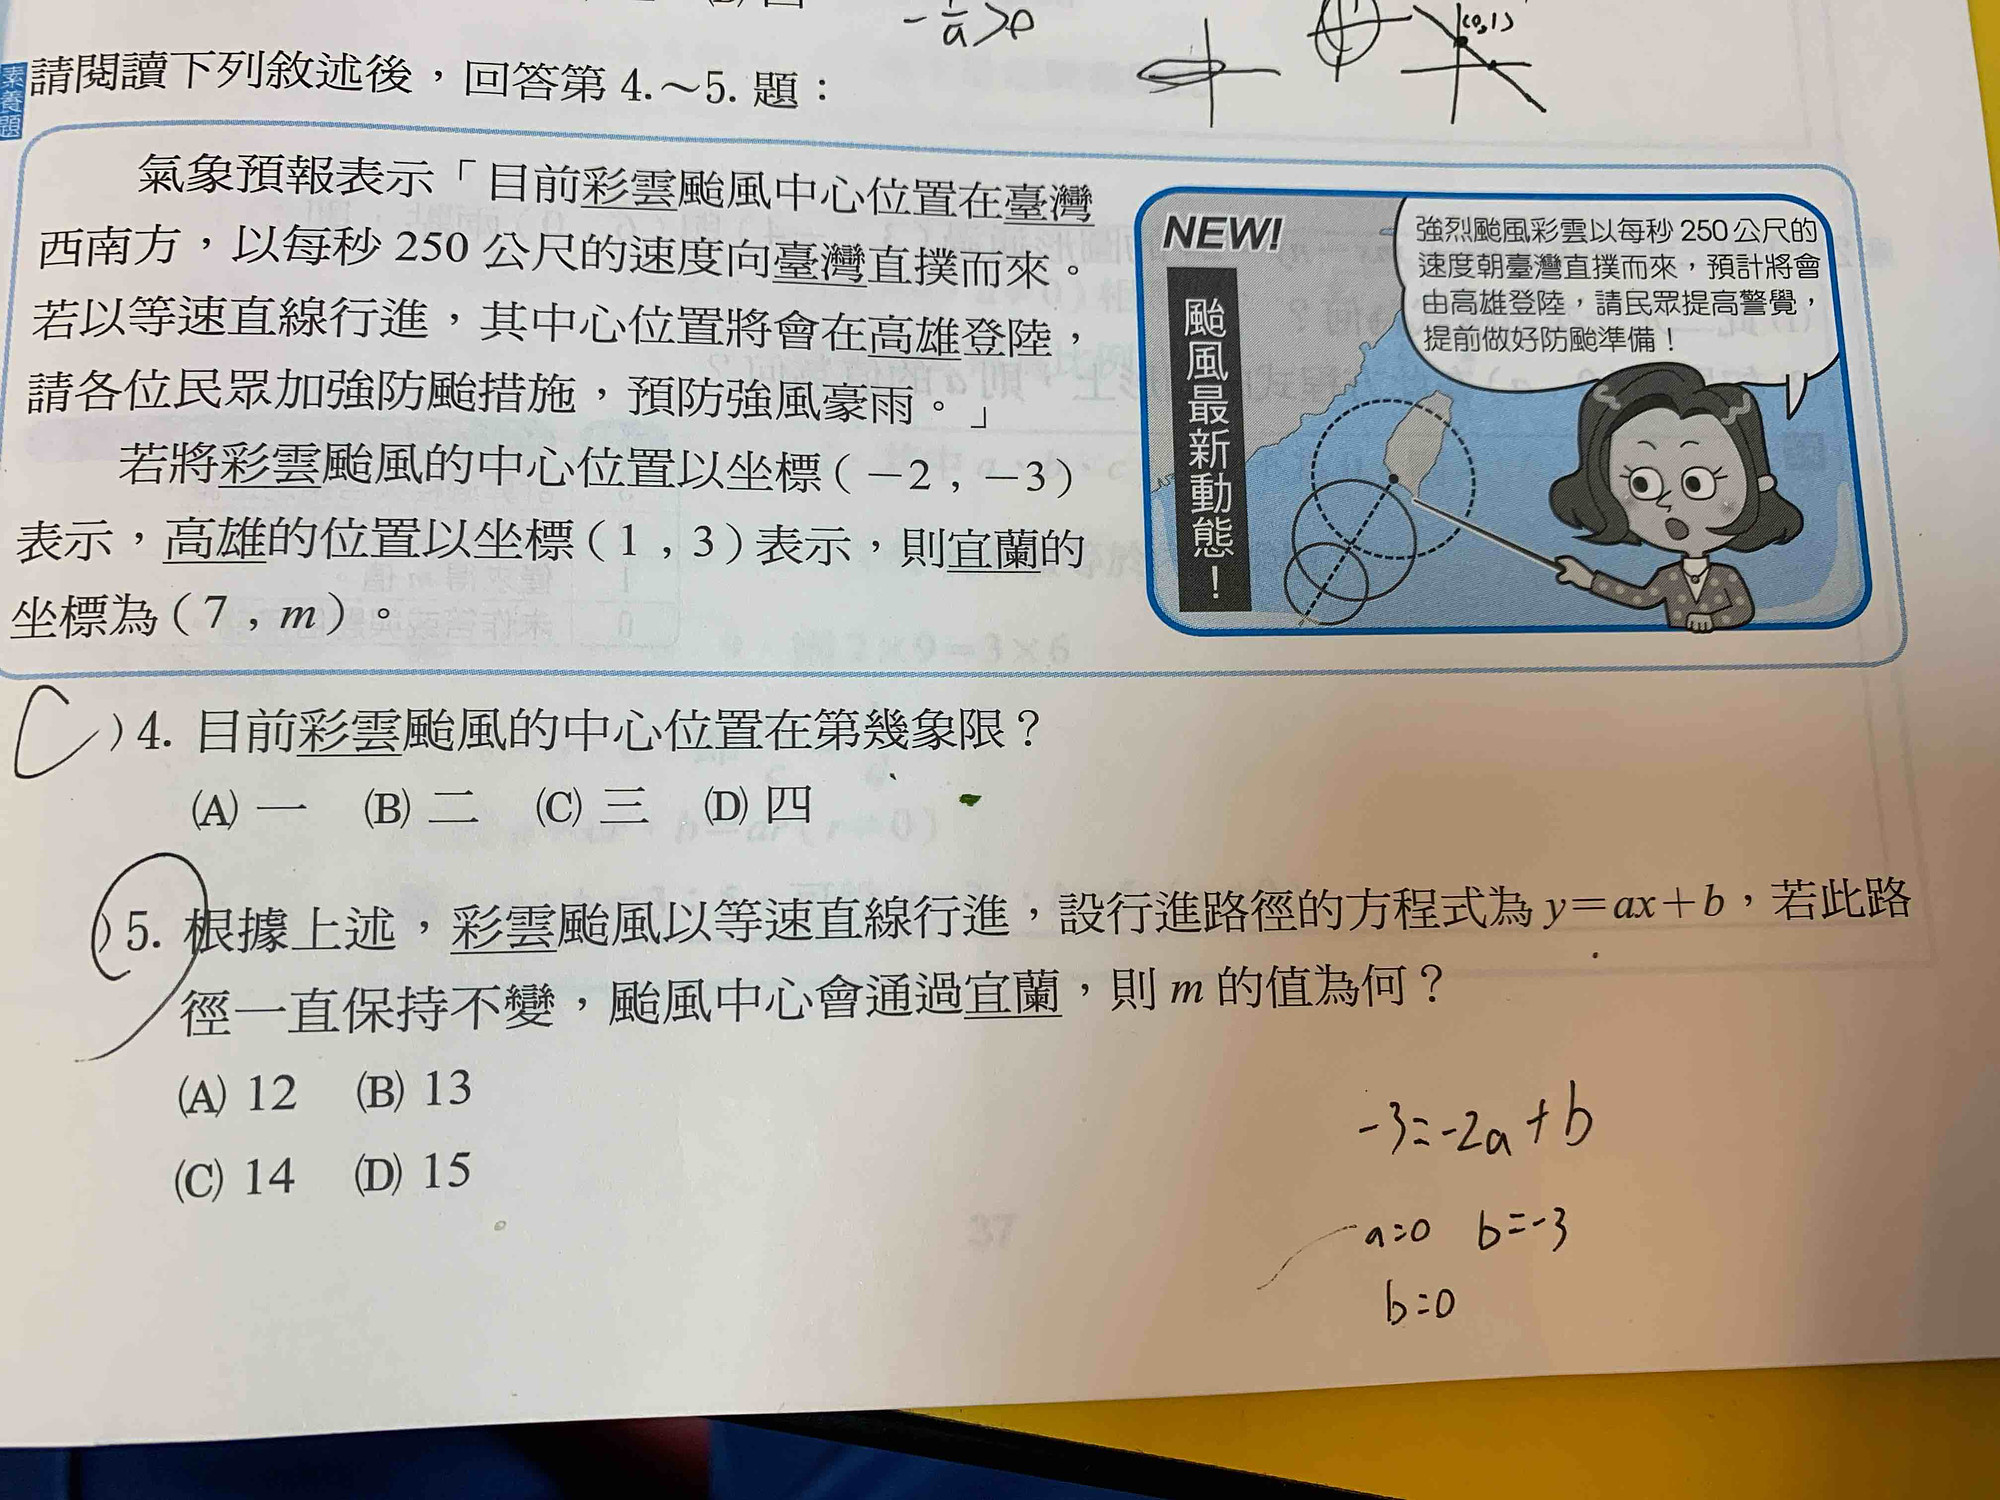 -1/a>0
(0,1)
素養題
請閱讀下列敘述後，回答第 4.～5. 題：
氣象預報表示「目前彩雲颱風中心位置在臺灣
西南方，以每秒 250 公尺的速度向臺灣直撲而來。
若以等速直線行進，其中心位置將會在高雄登陸，
請各位民眾加強防颱措施，預防強風豪雨。」
若將彩雲颱風的中心位置以坐標（－2，－3）
表示，高雄的位置以坐標（1，3）表示，則宜蘭的
坐標為（7，m）。
NEW!
颱風最新動態！
強烈颱風彩雲以每秒 250 公尺的
速度朝臺灣直撲而來，預計將會
由高雄登陸，請民眾提高警覺，
提前做好防颱準備！
C )4. 目前彩雲颱風的中心位置在第幾象限？
(A) 一 (B) 二 (C) 三 (D) 四
)5. 根據上述，彩雲颱風以等速直線行進，設行進路徑的方程式為 y＝ax＋b，若此路
徑一直保持不變，颱風中心會通過宜蘭，則 m 的值為何？
(A) 12 (B) 13
(C) 14 (D) 15
-3=-2a+b
a=0 b=-3
b=0
37